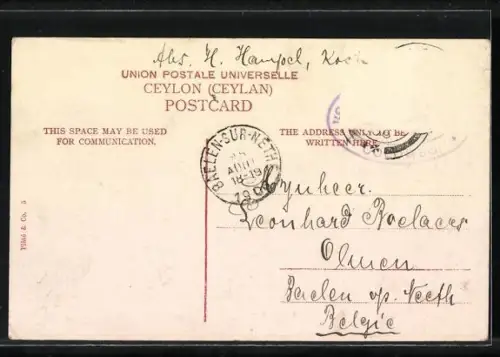 Abs. H. Hampel,
UNION POSTALE UNIVERSELLE
CEYLON (CEYLAN)
POSTCARD
THIS SPACE MAY BE USED
FOR COMMUNICATION.
THE ADDRESS ONLY BE
WRITTEN HERE
BAELEN-SUR-NETHE
AOUT
18-19
Mynheer.
Leonhard Roelaers
Olmen
Baelen op Neeth
Belgie
Plâté & Co. 5